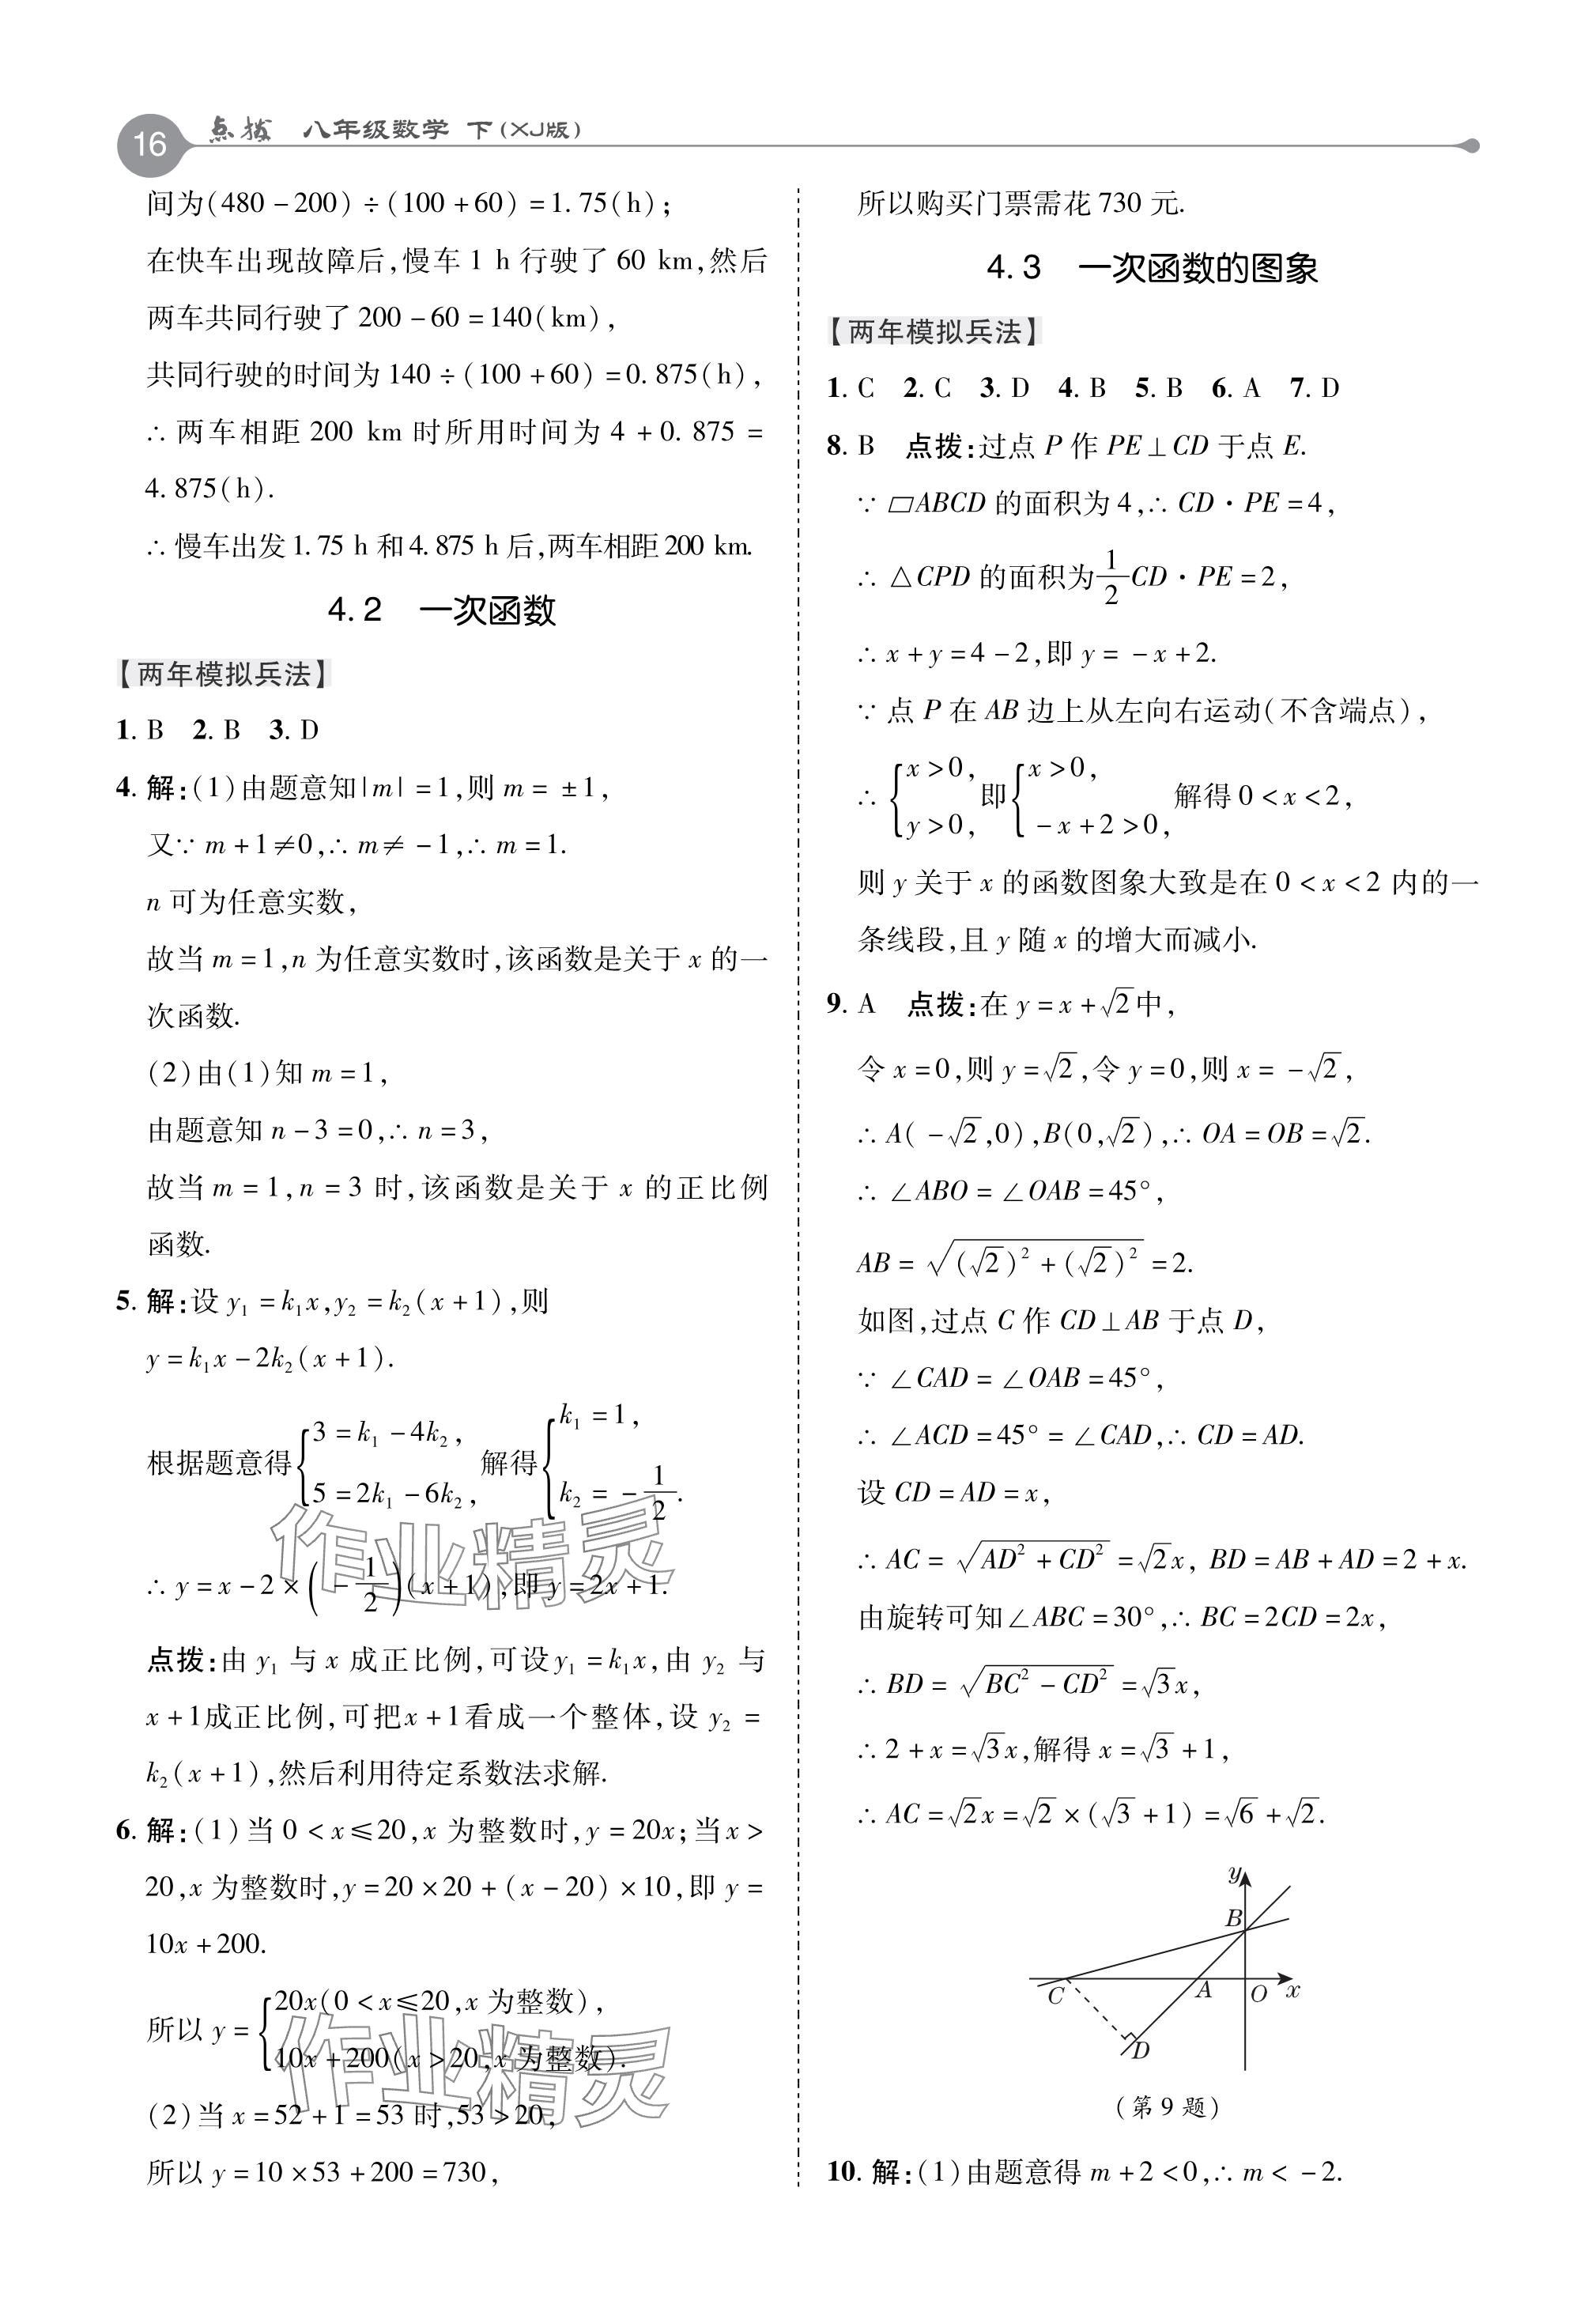 16 点拨 八年级数学 下(XJ版)
间为(480-200)÷(100+60)=1.75(h);
在快车出现故障后,慢车1 h行驶了60 km,然后
两车共同行驶了200-60=140(km),
共同行驶的时间为140÷(100+60)=0.875(h),
∴两车相距200 km时所用时间为4+0.875=
4.875(h).
∴慢车出发1.75 h和4.875 h后,两车相距200 km.
4.2 一次函数
【两年模拟兵法】
1. B 2. B 3. D
4. 解:(1)由题意知|m|=1,则m=±1,
又∵m+1≠0,∴m≠-1,∴m=1.
n可为任意实数,
故当m=1,n为任意实数时,该函数是关于x的一
次函数.
(2)由(1)知m=1,
由题意知n-3=0,∴n=3,
故当m=1,n=3时,该函数是关于x的正比例
函数.
5. 解:设y₁=k₁x,y₂=k₂(x+1),则
y=k₁x-2k₂(x+1).
根据题意得{3=k₁-4k₂, 5=2k₁-6k₂, 解得{k₁=1, k₂=-1/2.
∴y=x-2×(-1/2)(x+1),即y=2x+1.
点拨:由y₁与x成正比例,可设y₁=k₁x,由y₂与
x+1成正比例,可把x+1看成一个整体,设y₂=
k₂(x+1),然后利用待定系数法求解.
6. 解:(1)当0<x≤20,x为整数时,y=20x;当x>
20,x为整数时,y=20×20+(x-20)×10,即y=
10x+200.
所以y={20x(0<x≤20,x为整数), 10x+200(x>20,x为整数).
(2)当x=52+1=53时,53>20,
所以y=10×53+200=730,
作业精灵
作业精灵
所以购买门票需花730元.
4.3 一次函数的图象
【两年模拟兵法】
1. C 2. C 3. D 4. B 5. B 6. A 7. D
8. B 点拨:过点P作PE⊥CD于点E.
∵▱ABCD的面积为4,∴CD·PE=4,
∴△CPD的面积为1/2CD·PE=2,
∴x+y=4-2,即y=-x+2.
∵点P在AB边上从左向右运动(不含端点),
∴{x>0, y>0, 即{x>0, -x+2>0, 解得0<x<2,
则y关于x的函数图象大致是在0<x<2内的一
条线段,且y随x的增大而减小.
9. A 点拨:在y=x+√2中,
令x=0,则y=√2,令y=0,则x=-√2,
∴A(-√2,0),B(0,√2),∴OA=OB=√2.
∴∠ABO=∠OAB=45°,
AB=√((√2)²+(√2)²)=2.
如图,过点C作CD⊥AB于点D,
∵∠CAD=∠OAB=45°,
∴∠ACD=45°=∠CAD,∴CD=AD.
设CD=AD=x,
∴AC=√(AD²+CD²)=√2x, BD=AB+AD=2+x.
由旋转可知∠ABC=30°,∴BC=2CD=2x,
∴BD=√(BC²-CD²)=√3x,
∴2+x=√3x,解得x=√3+1,
∴AC=√2x=√2×(√3+1)=√6+√2.
y
B
C A O x
D
(第9题)
10. 解:(1)由题意得m+2<0,∴m<-2.